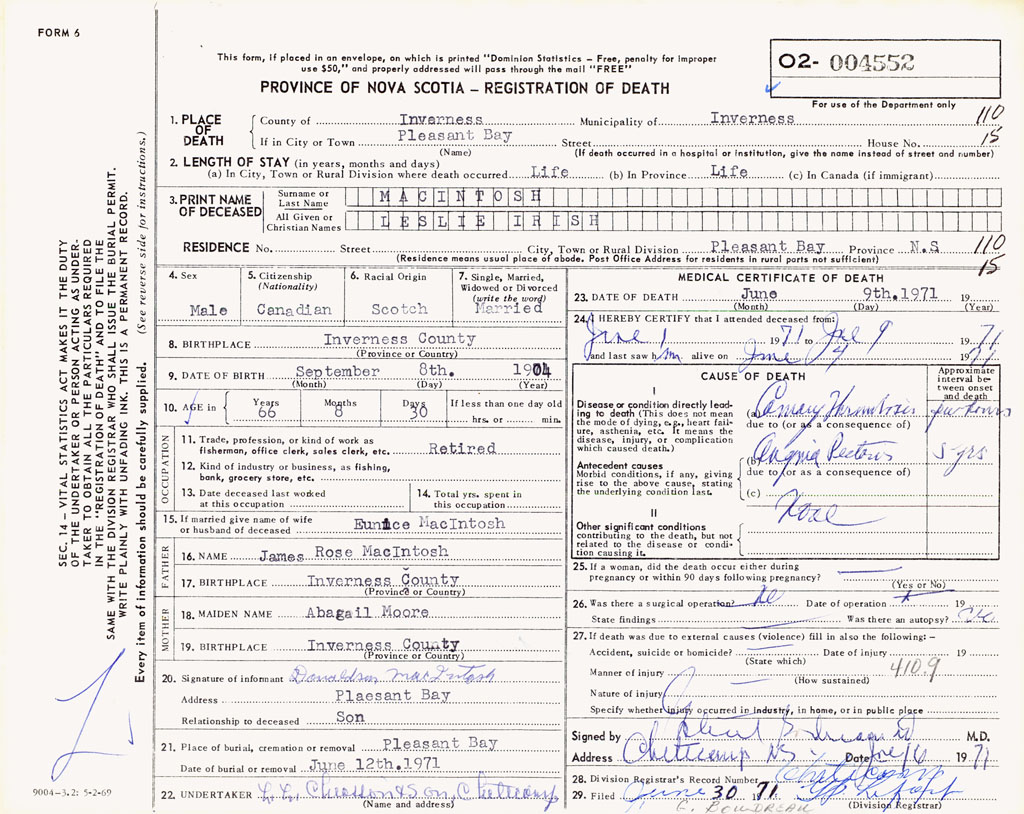 FORM 6
This form, if placed in an envelope, on which is printed "Dominion Statistics – Free, penalty for improper
use $50," and properly addressed will pass through the mail "FREE"
PROVINCE OF NOVA SCOTIA – REGISTRATION OF DEATH
02- 004552
For use of the Department only
1. PLACE OF DEATH
County of Inverness Municipality of Inverness 110
If in City or Town Pleasant Bay Street House No. 15
(Name) (If death occurred in a hospital or institution, give the name instead of street and number)
2. LENGTH OF STAY (in years, months and days)
(a) In City, Town or Rural Division where death occurred Life (b) In Province Life (c) In Canada (if immigrant)
3. PRINT NAME OF DECEASED
Surname or Last Name MACINTOSH
All Given or Christian Names LESLIE IRISH
RESIDENCE No. Street City, Town or Rural Division Pleasant Bay Province N.S 110
(Residence means usual place of abode. Post Office Address for residents in rural parts not sufficient) 15
4. Sex
Male
5. Citizenship
(Nationality)
Canadian
6. Racial Origin
Scotch
7. Single, Married,
Widowed or Divorced
(write the word)
Married
8. BIRTHPLACE Inverness County
(Province or Country)
9. DATE OF BIRTH September 8th. 1904
(Month) (Day) (Year)
10. AGE in Years Months Days If less than one day old
66 8 30 hrs. or min.
OCCUPATION
11. Trade, profession, or kind of work as
fisherman, office clerk, sales clerk, etc. Retired
12. Kind of industry or business, as fishing,
bank, grocery store, etc.
13. Date deceased last worked
at this occupation
14. Total yrs. spent in
this occupation
15. If married give name of wife
or husband of deceased Eunice MacIntosh
FATHER
16. NAME James Rose MacIntosh
17. BIRTHPLACE Inverness County
(Province or Country)
MOTHER
18. MAIDEN NAME Abagail Moore
19. BIRTHPLACE Inverness County
(Province or Country)
20. Signature of informant Donaldson MacIntosh
Address Plaesant Bay
Relationship to deceased Son
21. Place of burial, cremation or removal Pleasant Bay
Date of burial or removal June 12th.1971
22. UNDERTAKER Chiasson & Son, Cheticamp
(Name and address)
MEDICAL CERTIFICATE OF DEATH
23. DATE OF DEATH June 9th.1971 19
(Month) (Day) (Year)
24. I HEREBY CERTIFY that I attended deceased from:
June 1 1971 to 9 1971
and last saw him alive on June 1971
CAUSE OF DEATH
Approximate
interval be-
tween onset
and death
I
Disease or condition directly lead-
ing to death (This does not mean
the mode of dying, e.g., heart fail-
ure, asthenia, etc. It means the
disease, injury, or complication
which caused death.)
(a) Coronary Thrombosis few hours
due to (or as a consequence of)
Antecedent causes
Morbid conditions, if any, giving
rise to the above cause, stating
the underlying condition last.
(b) Angina Pectoris 5 yrs
due to (or as a consequence of)
(c)
II
Other significant conditions
contributing to the death, but not
related to the disease or condi-
tion causing it.
None
25. If a woman, did the death occur either during
pregnancy or within 90 days following pregnancy?
(Yes or No)
26. Was there a surgical operation? No Date of operation 19
State findings Was there an autopsy? No
27. If death was due to external causes (violence) fill in also the following: –
Accident, suicide or homicide? Date of injury 19
(State which)
Manner of injury 410.9
(How sustained)
Nature of injury
Specify whether injury occurred in industry, in home, or in public place
Signed by M.D.
Address Cheticamp NS Date 16 1971
28. Division Registrar's Record Number Cheticamp
29. Filed June 30 1971
(Division Registrar)
E. BOUDREAU
SEC. 14 – VITAL STATISTICS ACT MAKES IT THE DUTY
OF THE UNDERTAKER OR PERSON ACTING AS UNDER-
TAKER TO OBTAIN ALL THE PARTICULARS REQUIRED
IN THE "REGISTRATION OF DEATH" AND TO FILE THE
SAME WITH THE DIVISION REGISTRAR WHO SHALL ISSUE THE BURIAL PERMIT.
WRITE PLAINLY WITH UNFADING INK. THIS IS A PERMANENT RECORD.
Every item of information should be carefully supplied. (See reverse side for instructions.)
9004-3.2: 5-2-69